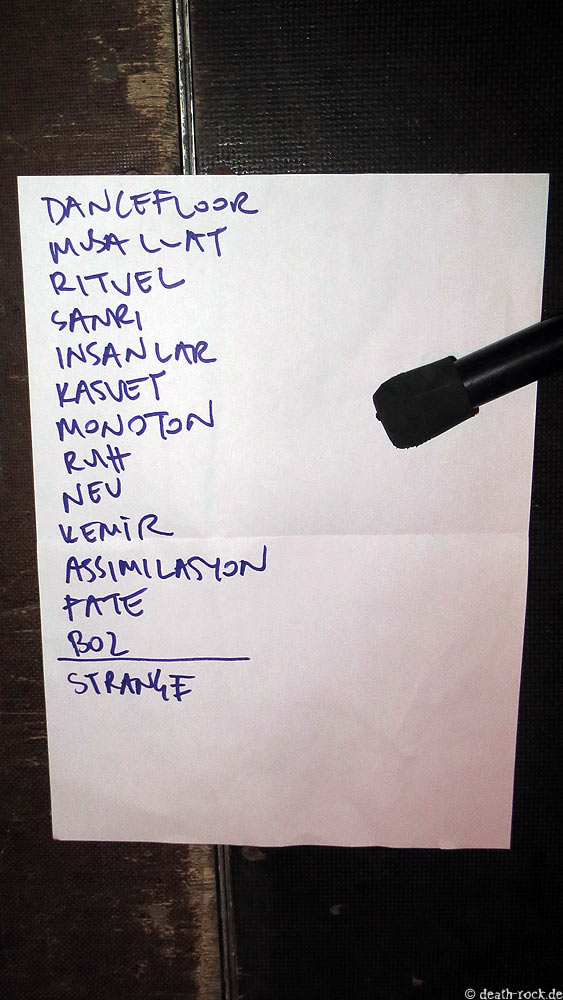 DANCEFLOOR
MUSALLAT
RITUEL
SANRI
INSANLAR
KASVET
MONOTON
RUH
NEU
KEMİR
ASSIMILASYON
FATE
BOZ
STRANGE
© death-rock.de